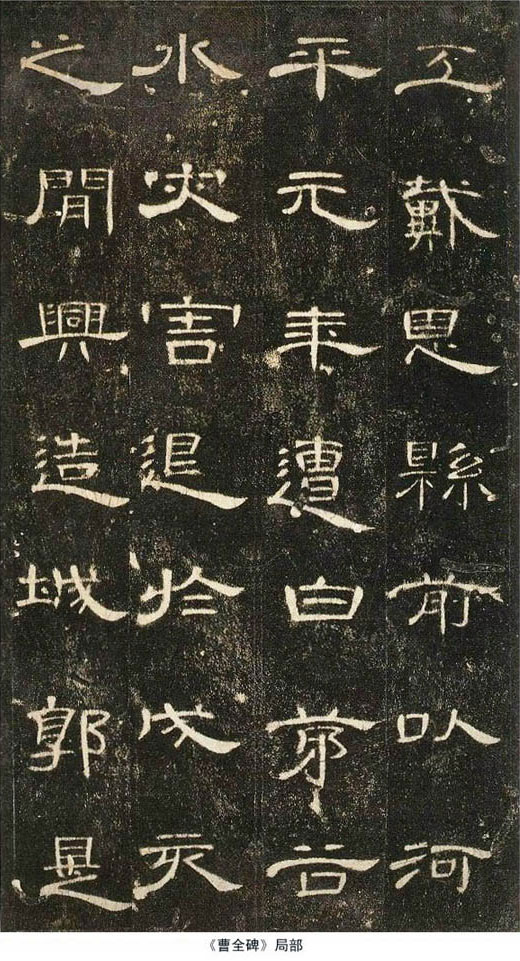 工戴恩縣前以河
平元年遭白茅谷
水灾害退於戌亥
之間興造城郭是
《曹全碑》局部